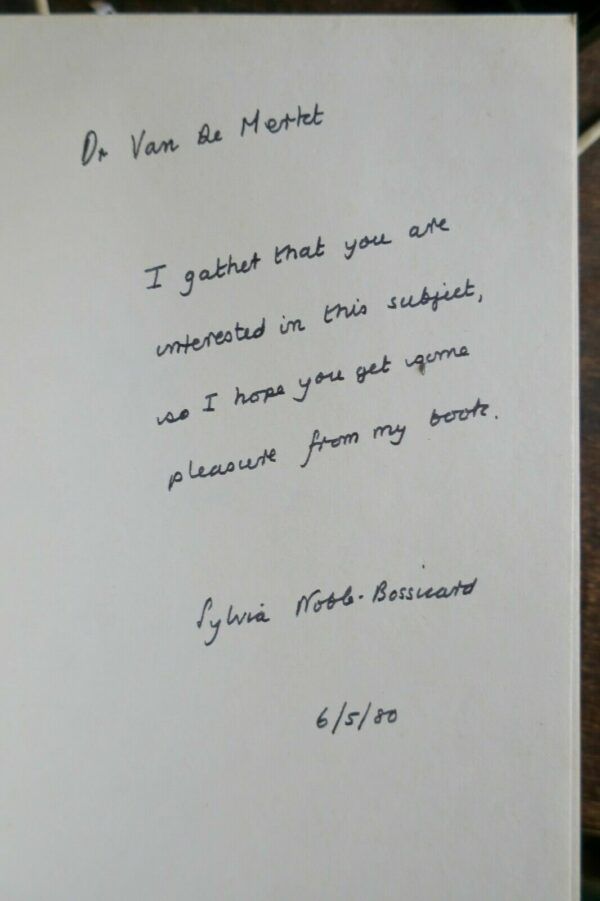 Dr Van de Merkt
I gather that you are
interested in this subject,
so I hope you get some
pleasure from my book.
Sylvia Noble-Bossieard
6/5/80